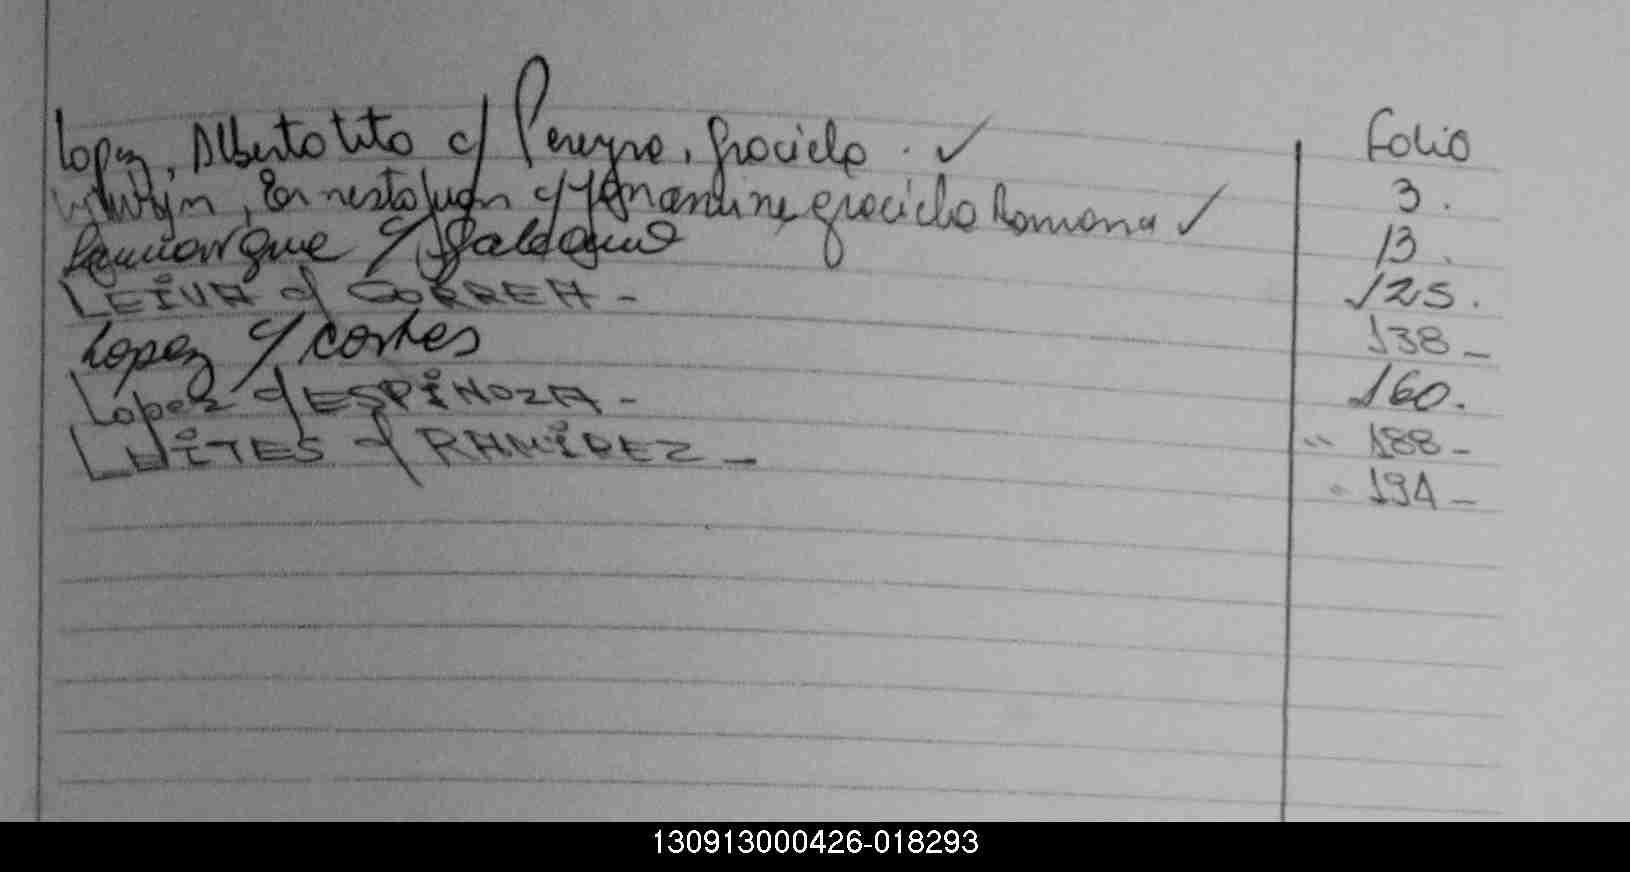 Folio
Lopez, Alberto Tito c/ Pereyra, Graciela . ✓ 3 .
, Ernesto Juan c/ Graciela Romona ✓ 13 .
c/ 125 .
LEIVA c/ CORREA - 138 -
Lopez c/ Cortes 160 .
Lopez c/ ESPINOZA - " 188 -
c/ RAMIREZ - 194 -
130913000426-018293